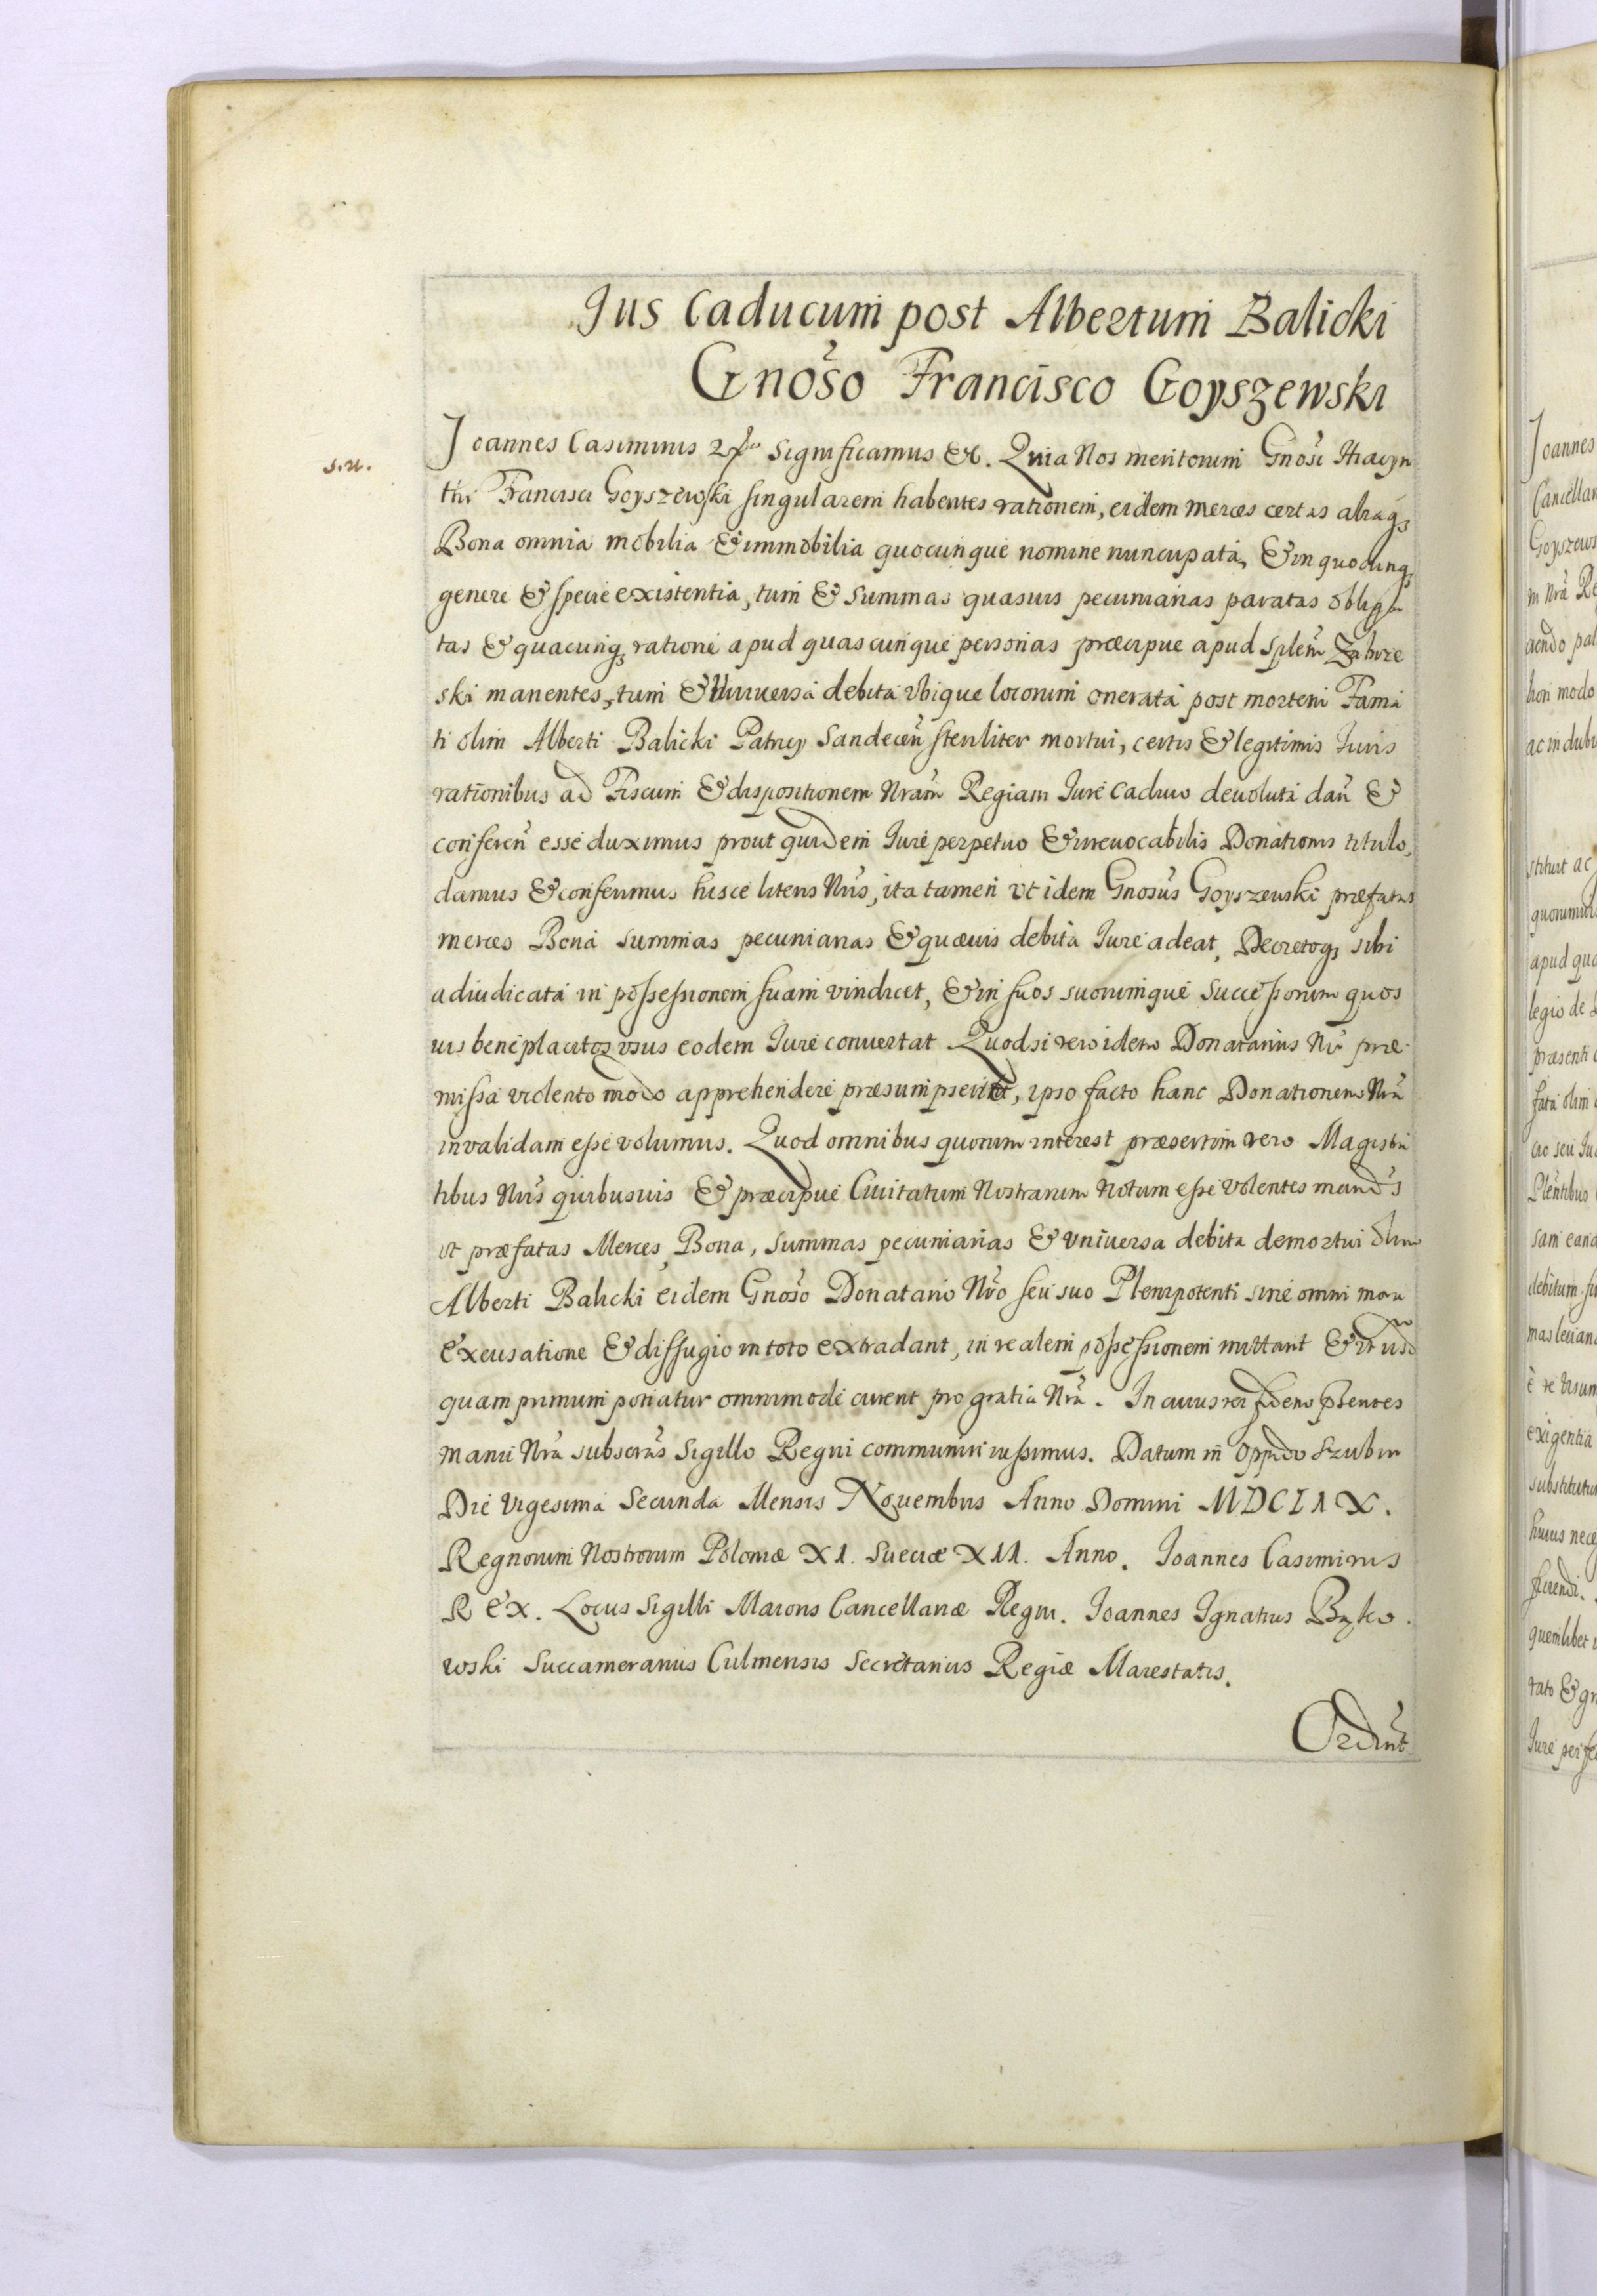 Jus Caducum post Albertum Balicki
Gnoso Francisco Goyszewski
s.n.
Joannes Casimirus Significamus &c. Quia Nos meritorum Gnosi Hiacyn
thi Francisci Goyszewski singularem habentes rationem, eidem merces certas aliasq3
Bona omnia mobilia & immobilia quocunque nomine nuncupata, & in quocunq3
genere & specie existentia, tum & summas quasvis pecuniarias paratas obliga
tas & quacunq3 ratione apud quascunque personas præcipue apud Splem
ski manentes, tum & Universa debita ubique locorum onerata post mortem Fama
ti olim Alberti Balicki Patricij Sandecen steriliter mortui, certis & legitimis Juris
rationibus ad Fiscum & dispositionem Nram Regiam Jure caduco devoluta dan &
conferen esse duximus prout quidem Jure perpetuo & irrevocabilis Donationis titulo,
damus & conferimus hisce literis Nris, ita tamen vt idem Gnosus Goyszewski præfatas
merces Bona summas pecuniarias & quævis debita Jure adeat, Decretoq3 sibi
adiudicata in possessionem suam vindicet, & in suos suorumque successorum quos
vis beneplacitos vsus eodem Jure convertat Quodsi vero idem Donatarius Nr præ
missa violento modo apprehendere præsumpserit, ipso facto hanc Donationem Nra
invalidam esse volumus. Quod omnibus quorum interest præsertim vero Magistra
tibus Nris quibusvis & præcipue Civitatum Nostrarum notum esse volentes mandus
vt præfatas Merces Bona, summas pecuniarias & vniversa debita demortui olim
Alberti Balicki eidem Gnoso Donatario Nro seu suo Plenipotenti sine omni mora
Excusatione & diffugio in toto extradant, in realem possessionem mittant &
quam primum potiatur omnimode curent pro gratia Nra. In cuius rei fidem psentes
manu Nra subscras Sigillo Regni communiri iussimus. Datum in Oppido Szubin
Die Vigesima Secunda Mensis Novembris Anno Domini MDCLIX.
Regnorum Nostrorum Poloniæ XI. Sueciæ XII. Anno. Joannes Casimirus
REX. Locus Sigilli Maioris Cancellariæ Regni. Joannes Ignatius Bąko
wski Succamerarius Culmensis Secretarius Regiæ Maiestatis.